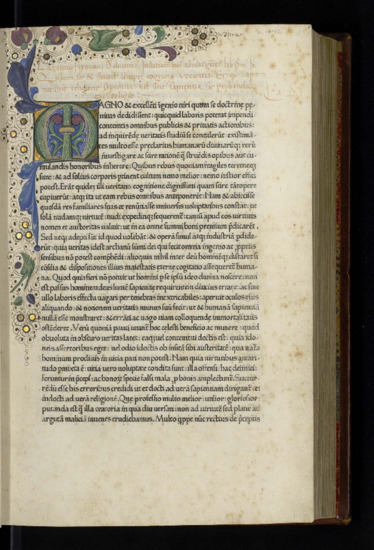 AGNO & excellēti īgenio uiri quum se doctrinę pe-
nitus dedidissent: quicquid laboris poterat impendi
contemtis omnibus publicis & priuatis actionibus:
ad inquirēdę ueritatis studiū se contulerūt: existimā-
tes multo esse pręclarius humanarū diuinarūq; rerū
inuestigare ac scire rationē q̄ struēdis opibus aut cu-
mulandis honoribus inhęrere. Quibus rebus quoniam fragiles terrenęq;
sunt: & ad solius corporis ptinent cultum nemo melior: nemo iustior effici
potest. Erāt quidem illi ueritatis cognitione dignissimi quam scire tātopere
cupiuerūt: atq; ita ut eam rebus omnibus anteponerēt. Nam & abiecisse
quosdā res familiares suas et renūtiasse uniuersis uoluptatibus constat: ut
solā nudamq; uirtutē nudi expeditiq; sequerent̄: tantū apud eos uirtutis
nomen et auctoritas ualuit: ut in ea omne summi boni premium pdicarēt.
Sed neq; adepti sūt id quod uolebāt: & operā simul atq; industriā pdide-
rūt: quia ueritas idest archanū summi dei qui fecit omnia ingenio ac ppriis
sensibus nō potest comphēdi: alioquin nihil inter deū hominēq; distaret: si
cōsilia & dispositiones illius maiestatis eternę cogitatio assequeret̄ huma-
na. Quod quia fieri nō potuit ut homini p se ipsū ratio diuina notesceret: nō
est passus hominē deus lumē sapientię requirentem diutius errare: ac sine
ullo laboris effectu uagari per tenebras inextricabiles: aperuit oculos eius
aliquando: & notionem ueritatis munus suū fecit: ut & humanā sapientiā
nullā esse monstraret: & errāti ac uago uiam consequendę immortalitatis
ostēderet. Verū quoniā pauci utunt̄ hoc cęlesti beneficio ac munere: quod
obuoluta in obscuro ueritas latet: eaq; uel contemtui doctis est: quia ido-
neis assertoribus eget: uel odio idoctis ob insitā sibi austeritatē: quā natura
hominum procliuis in uitia pati non potest. Nam quia uirtutibus amari-
tudo pmixta ē: uitia uero uoluptate condita sunt: illa offensi: hac deliniti:
ferunt̄ in pceps: ac bonorū specie falsi mala p bonis amplectunt̄. Succur-
rēdū esse his erroribus credidi: ut et docti ad uerā sapientiam dirigant̄: et
indocti ad uerā religionē. Quę professio multo melior: utilior: gloriosior
putanda est q̄ illa oratoria in qua diu uersati: non ad uirtutē sed plane ad
argutā malitiā iuuenes erudiebamus. Multo q̄ppe nūc rectius de pceptis